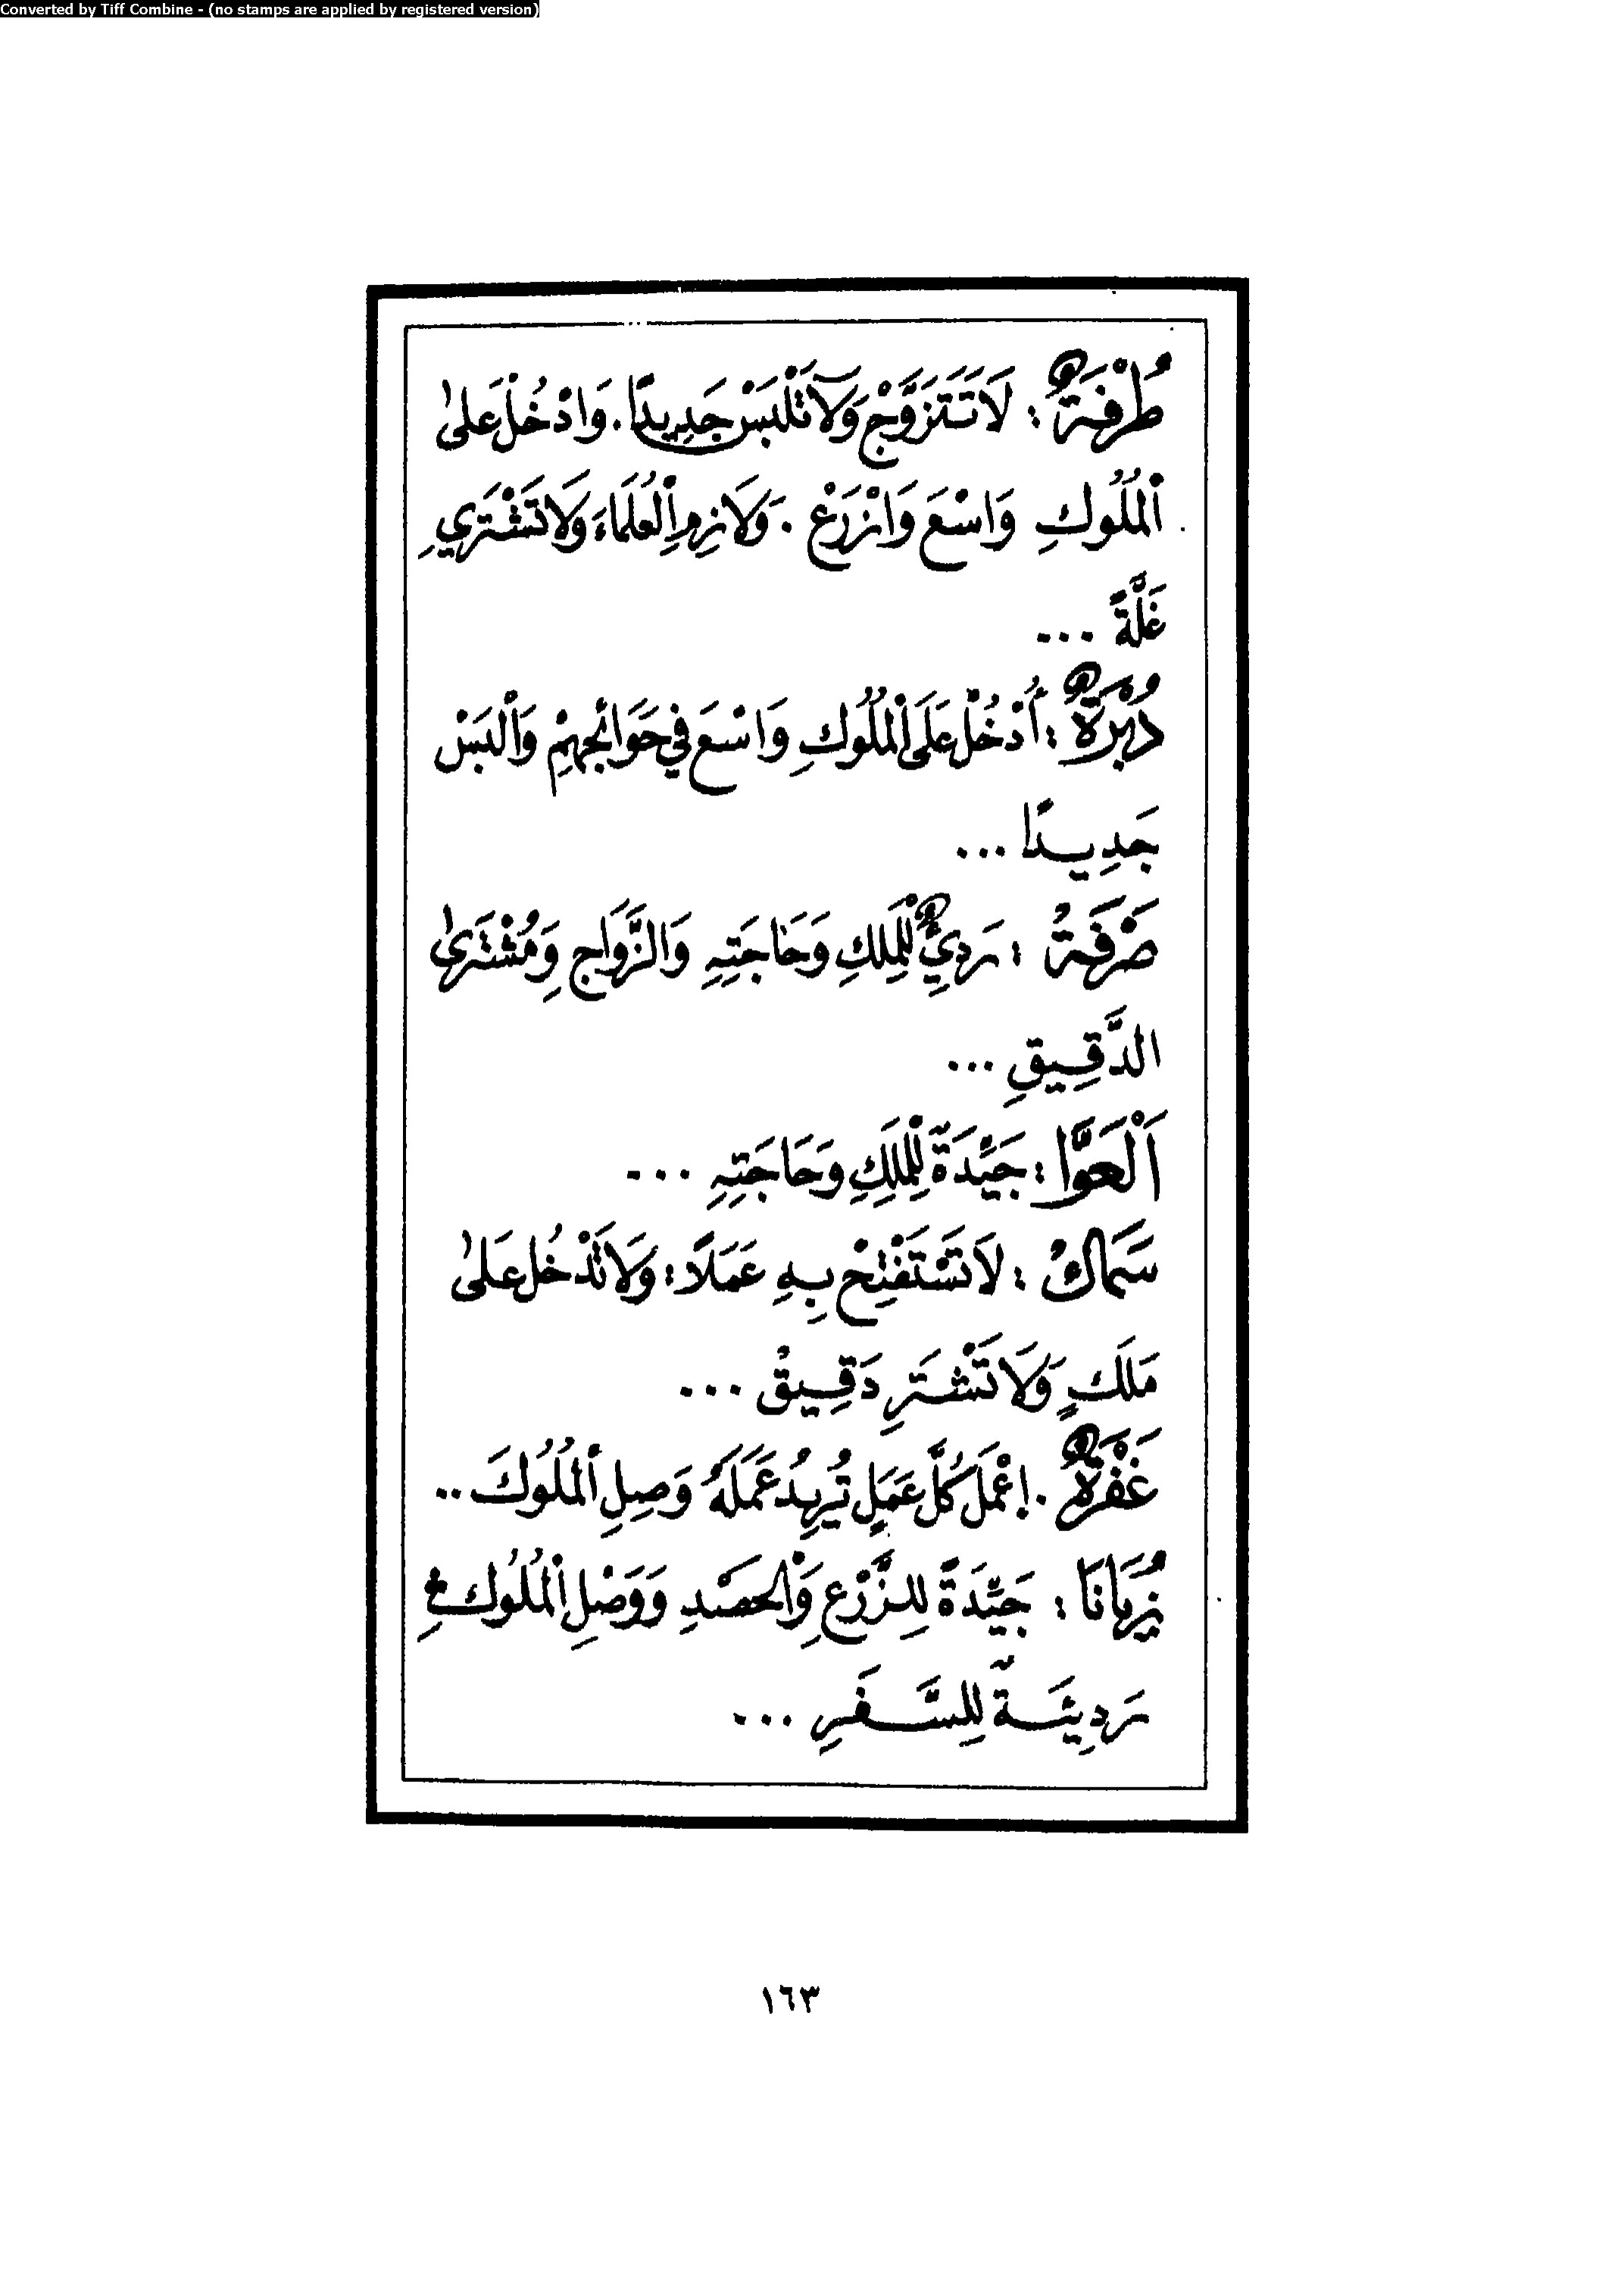 Converted by Tiff Combine - (no stamps are applied by registered version)
طُرْفَةٌ : لَا تَتَزَوَّجْ وَلَا تَلْبَسْ جَدِيدًا. وَادْخُلْ عَلىٰ
اْلمُلُوكِ وَاسْعَ وَازْرَعْ . وَلَازِمِ اْلعُلَمَاءَ وَلَا تَشْتَرِي
غَلَّةً ...
دُبْرَةٌ : أُدْخُلْ عَلَى اْلمُلُوكِ وَاسْعَ فِي حَوَائِجِهِمْ وَاْلبَسْ
جَدِيدًا ...
صَرْفَةُ : رَدِيٌ لِلْمَلِكِ وَحَاجَتِهِ وَالزَّوَاجِ وَمُشْتَرىٰ
الدَّقِيقِ ...
اَلْعَوَّا : جَيِّدَةٌ لِلْمَلِكِ وَحَاجَتِهِ ...
سَمَاكُ : لَا تَسْتَفْتِحْ بِهِ عَمَلًا : وَلَا تَدْخُلْ عَلىٰ
مَلَكٍ وَلَا تَشْتَرِ دَقِيقْ ...
غَفْرَةٌ . اِعْمَلْ كُلَّ عَمَلٍ تُرِيدُ عَمَلَهُ وَصِلِ اْلمُلُوكَ ..
زُبَانَا : جَيِّدَةٌ لِلزَّرْعِ وَاْلحَصْدِ وَوَصْلِ اْلمُلُوكِ
رَدِيئَةٌ لِلسَّفَرِ ...
١٦٣